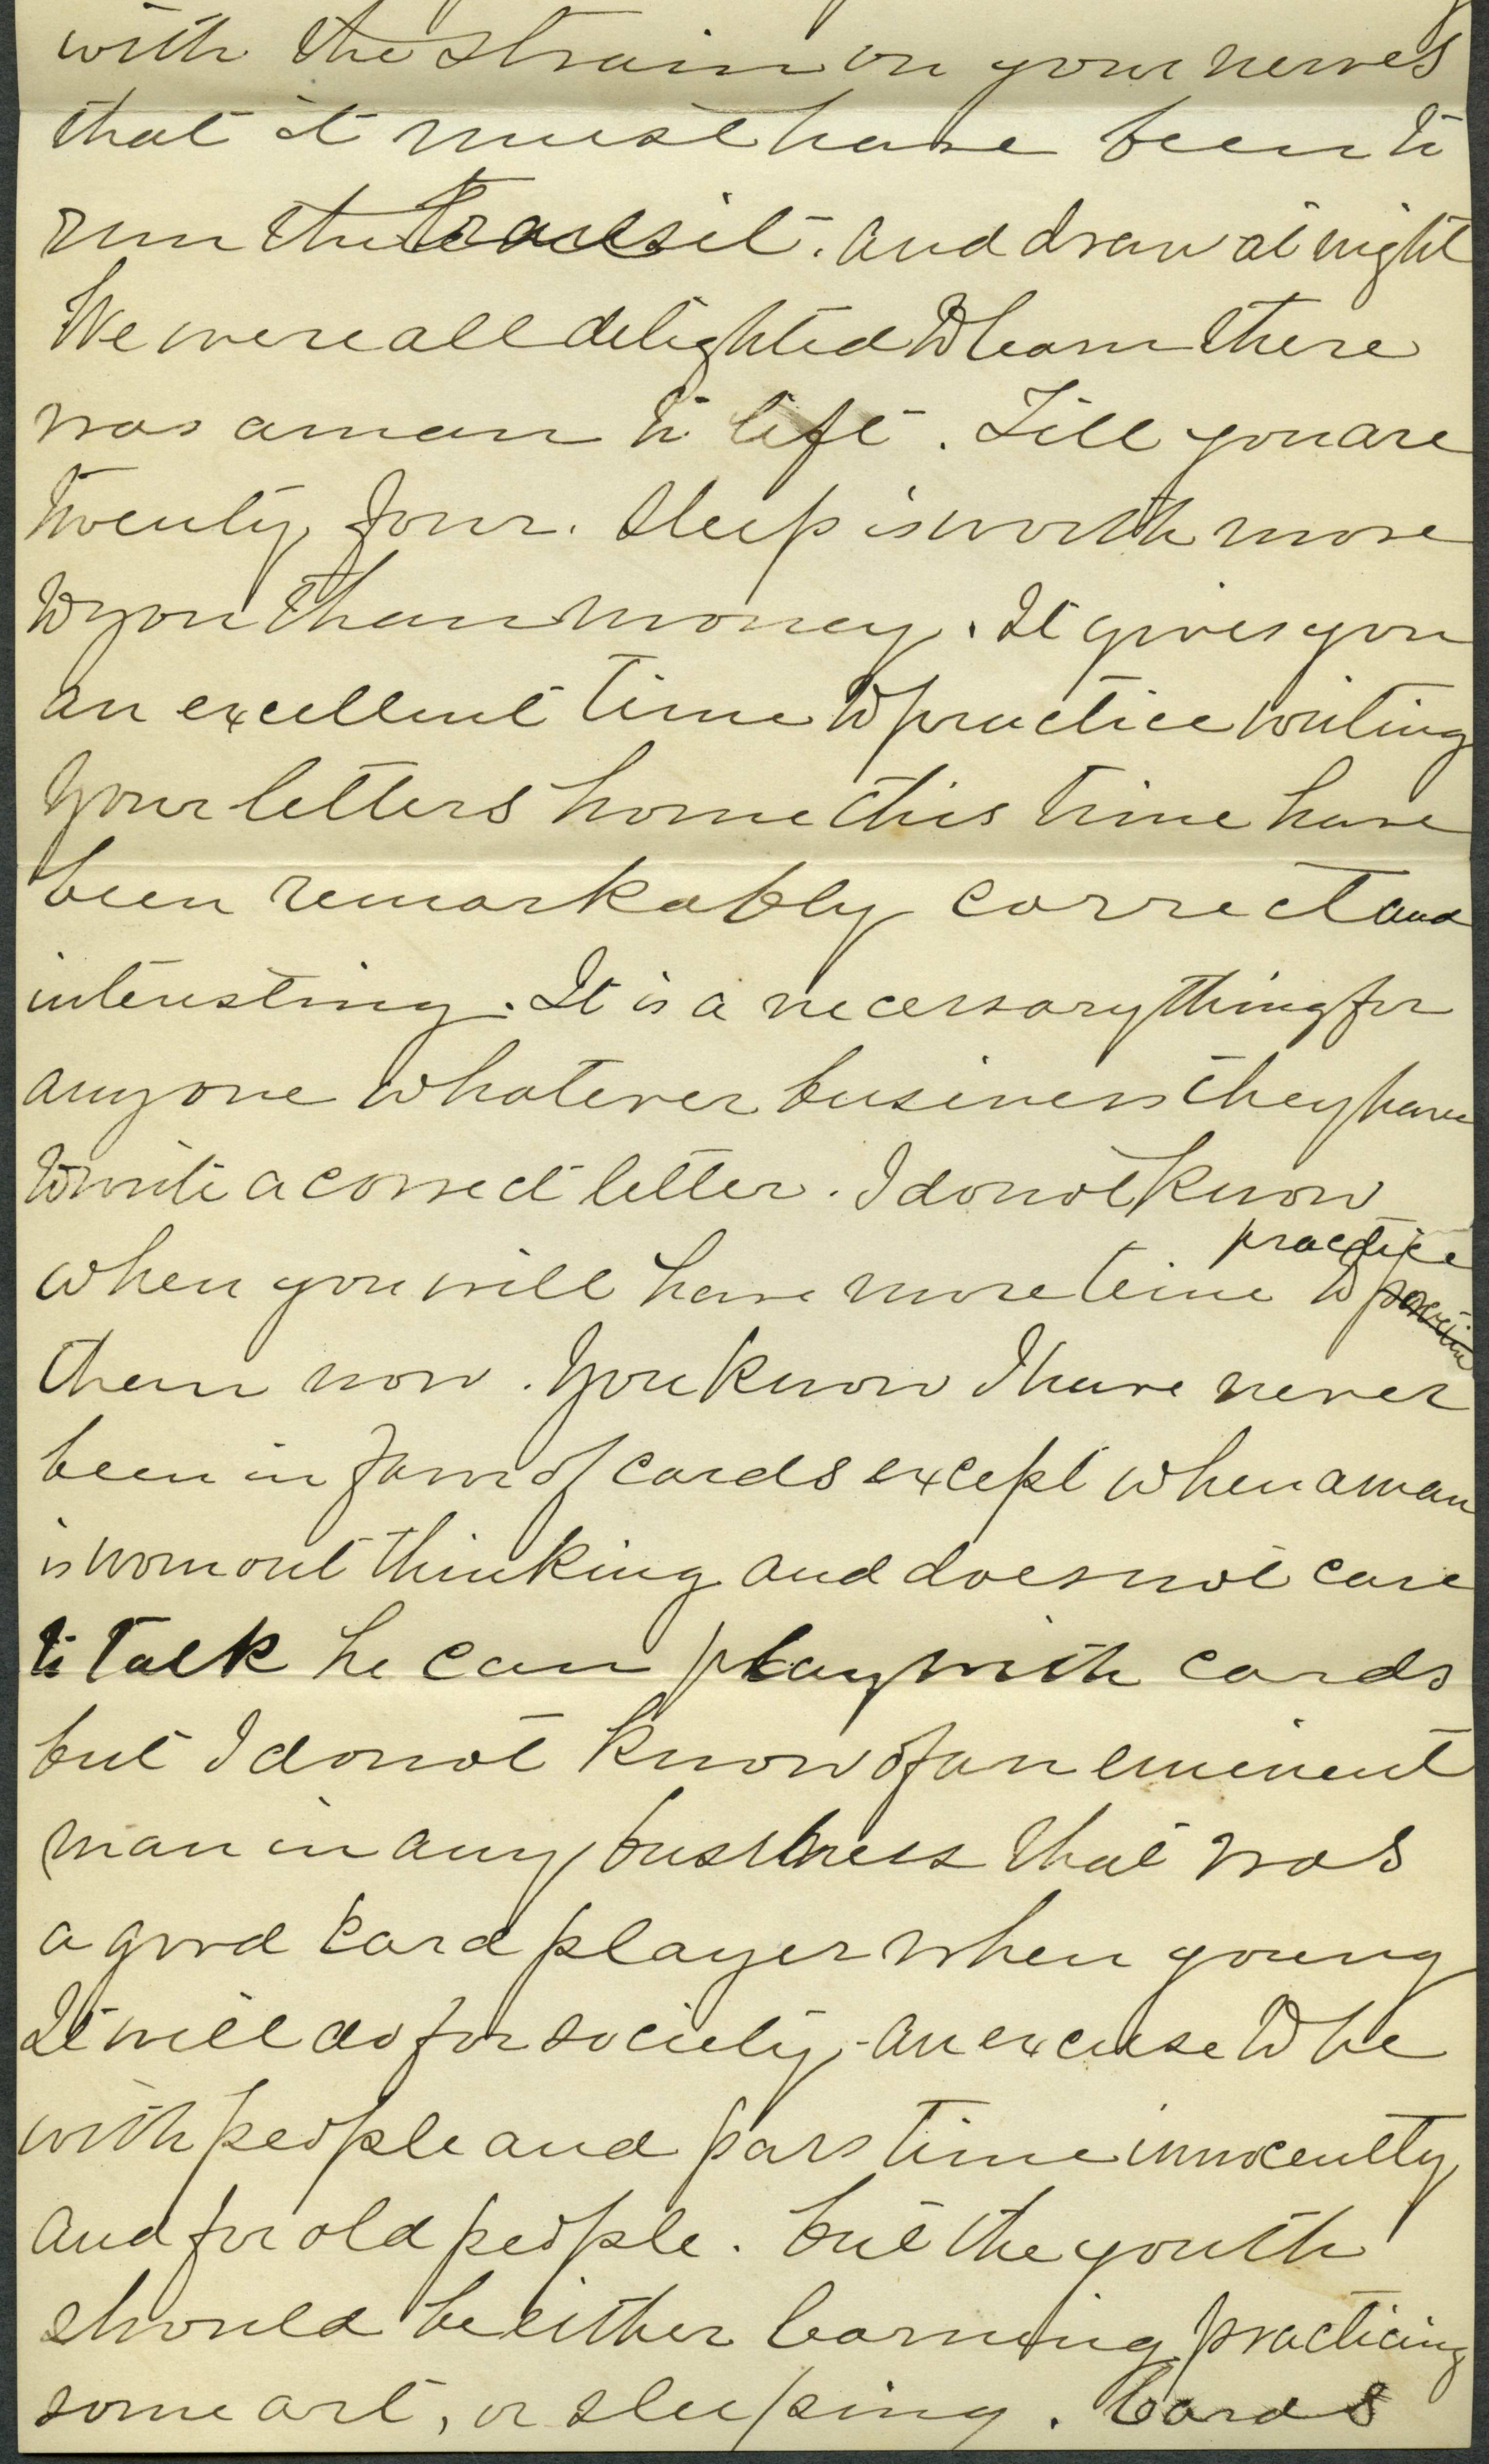 with the strain on your nerves
that it must have been to
run the Transit. And draw at night
We were all delighted to learn there
was a man to lift. Till you are
twenty four. Sleep is worth more
to you than money. It gives you
an excellent time to practice writing
Your letters home this time have
been remarkably correct and
interesting. It is a necessary thing for
anyone whatever business they have
to write a correct letter. I do not know
practice
when you will have more time to
them now. You know I have never
been in favor of cards except when a man
is worn out thinking and does not care
to talk he can play with cards
but I do not know of an eminent
man in any business that was
a good card player when young
It will do for society - an excuse to be
with people and pass time innocently
and for old people. but the youth
should be either learning practicing
some art, or sleeping. Cards